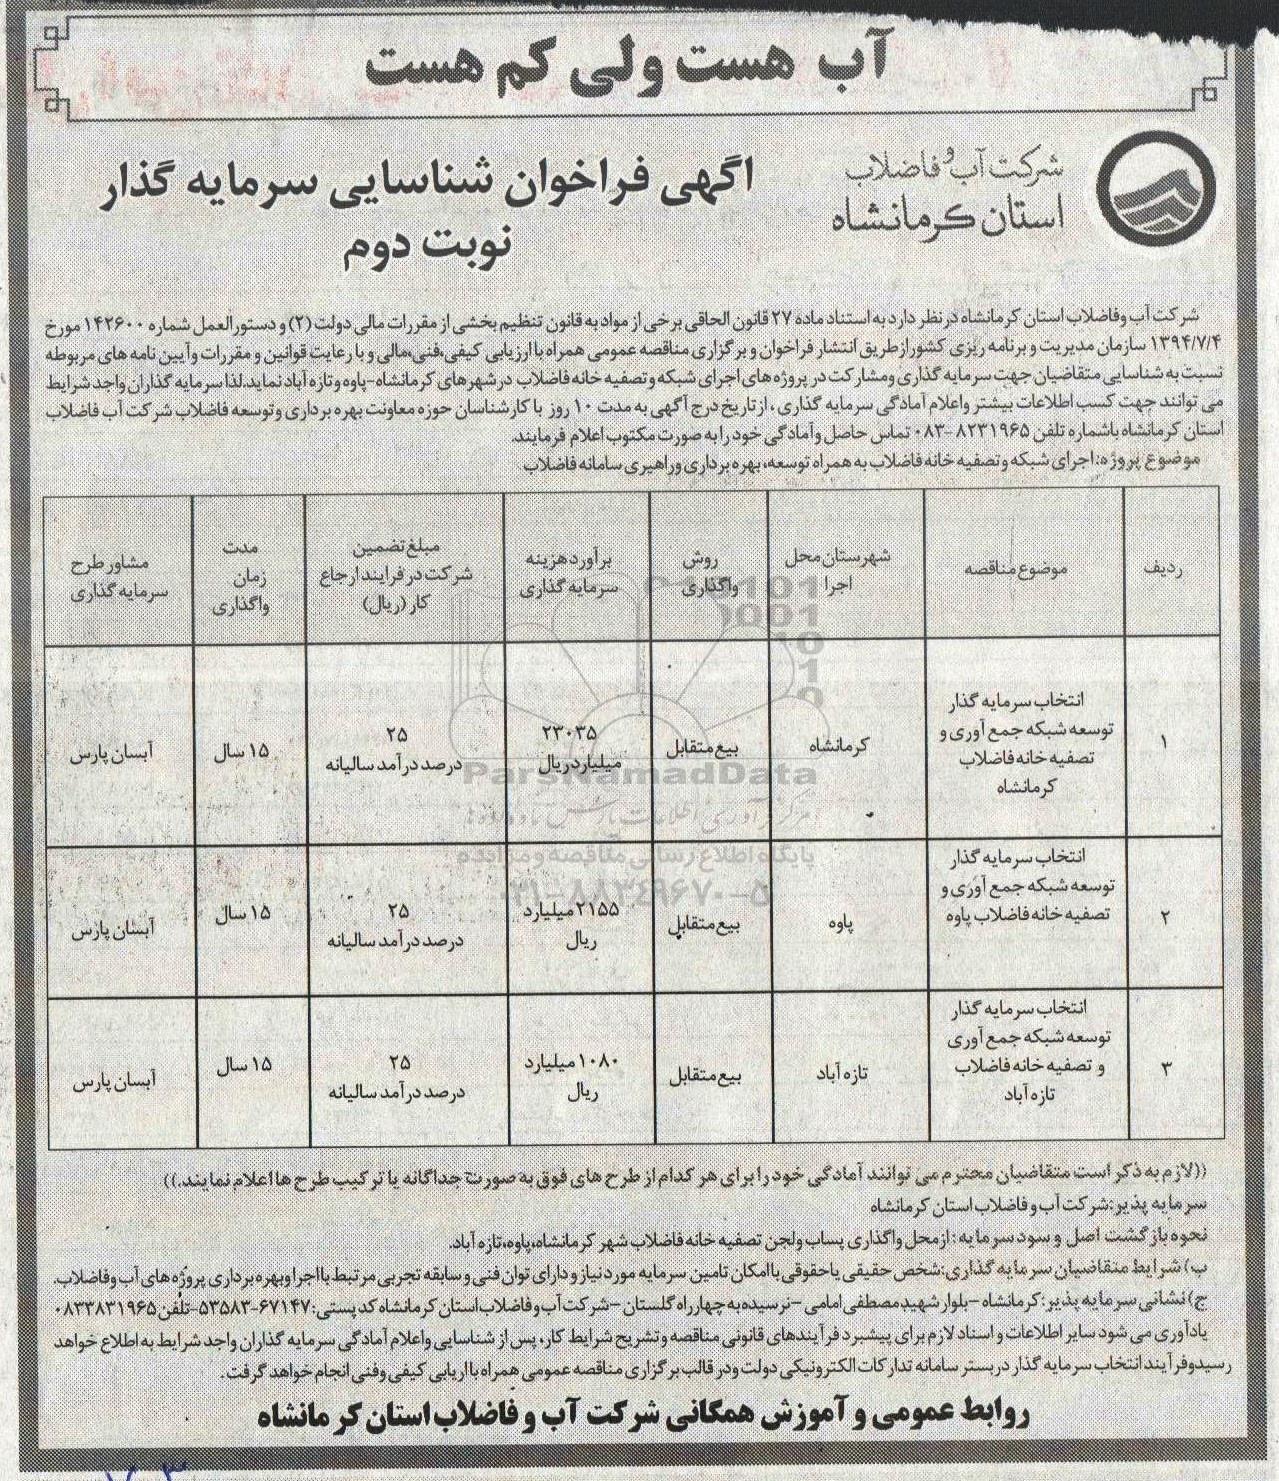 آب هست ولی کم هست
شرکت آب و فاضلاب
استان کرمانشاه
آگهی فراخوان شناسایی سرمایه گذار
نوبت دوم
شرکت آب وفاضلاب استان کرمانشاه درنظر دارد به استناد ماده ۲۷ قانون الحاقی برخی از مواد به قانون تنظیم بخشی از مقررات مالی دولت (۲) و دستورالعمل شماره ۱۴۲۶۰۰ مورخ
۱۳۹۴/۷/۴ سازمان مدیریت و برنامه ریزی کشورازطریق انتشار فراخوان و برگزاری مناقصه عمومی همراه با ارزیابی کیفی،فنی،مالی و با رعایت قوانین و مقررات وآیین نامه های مربوطه
نسبت به شناسایی متقاضیان جهت سرمایه گذاری ومشارکت در پروژه های اجرای شبکه وتصفیه خانه فاضلاب درشهرهای کرمانشاه-پاوه وتازه آباد نماید.لذا سرمایه گذاران واجد شرایط
می توانند جهت کسب اطلاعات بیشتر واعلام آمادگی سرمایه گذاری ، ازتاریخ درج آگهی به مدت ۱۰ روز با کارشناسان حوزه معاونت بهره برداری وتوسعه فاضلاب شرکت آب فاضلاب
استان کرمانشاه باشماره تلفن ۸۲۳۱۹۶۵ -۰۸۳ تماس حاصل وآمادگی خود را به صورت مکتوب اعلام فرمایند.
موضوع پروژه:اجرای شبکه وتصفیه خانه فاضلاب به همراه توسعه، بهره برداری وراهبری سامانه فاضلاب
ردیف
موضوع مناقصه
شهرستان محل
اجرا
روش
واگذاری
برآورد هزینه
سرمایه گذاری
مبلغ تضمین
شرکت در فرایند ارجاع
کار (ریال)
مدت
زمان
واگذاری
مشاور طرح
سرمایه گذاری
۱
انتخاب سرمایه گذار
توسعه شبکه جمع آوری و
تصفیه خانه فاضلاب
کرمانشاه
کرمانشاه
بیع متقابل
۲۳۰۳۵
میلیارد ریال
۲۵
درصد درآمد سالیانه
۱۵ سال
آبسان پارس
۲
انتخاب سرمایه گذار
توسعه شبکه جمع آوری و
تصفیه خانه فاضلاب پاوه
پاوه
بیع متقابل
۲۱۵۵ میلیارد
ریال
۲۵
درصد درآمد سالیانه
۱۵ سال
آبسان پارس
۳
انتخاب سرمایه گذار
توسعه شبکه جمع آوری
و تصفیه خانه فاضلاب
تازه آباد
تازه آباد
بیع متقابل
۱۰۸۰ میلیارد
ریال
۲۵
درصد درآمد سالیانه
۱۵ سال
آبسان پارس
ParsNamadData
پایگاه اطلاع رسانی مناقصه و مزایده
۰۲۱-۸۸۳۴۹۶۷۰-۵
((لازم به ذکر است متقاضیان محترم می توانند آمادگی خود را برای هر کدام از طرح های فوق به صورت جداگانه یا ترکیب طرح ها اعلام نمایند.))
سرمایه پذیر:شرکت آب و فاضلاب استان کرمانشاه
نحوه بازگشت اصل و سود سرمایه : ازمحل واگذاری پساب ولجن تصفیه خانه فاضلاب شهر کرمانشاه،پاوه،تازه آباد.
ب) شرایط متقاضیان سرمایه گذاری:شخص حقیقی یاحقوقی باامکان تامین سرمایه مورد نیاز و دارای توان فنی و سابقه تجربی مرتبط بااجرا وبهره برداری پروژه های آب وفاضلاب.
ج) نشانی سرمایه پذیر:کرمانشاه -بلوار شهید مصطفی امامی -نرسیده به چهارراه گلستان -شرکت آب و فاضلاب استان کرمانشاه کد پستی:۶۷۱۴۷-۵۳۵۸۳-تلفن ۰۸۳۳۸۳۱۹۶۵
یادآوری می شود سایر اطلاعات و اسناد لازم برای پیشبرد فرآیندهای قانونی مناقصه وتشریح شرایط کار، پس از شناسایی واعلام آمادگی سرمایه گذاران واجد شرایط به اطلاع خواهد
رسیدوفرآیند انتخاب سرمایه گذار دربستر سامانه تدارکات الکترونیکی دولت ودر قالب برگزاری مناقصه عمومی همراه بااریابی کیفی وفنی انجام خواهد گرفت.
روابط عمومی و آموزش همگانی شرکت آب و فاضلاب استان کرمانشاه